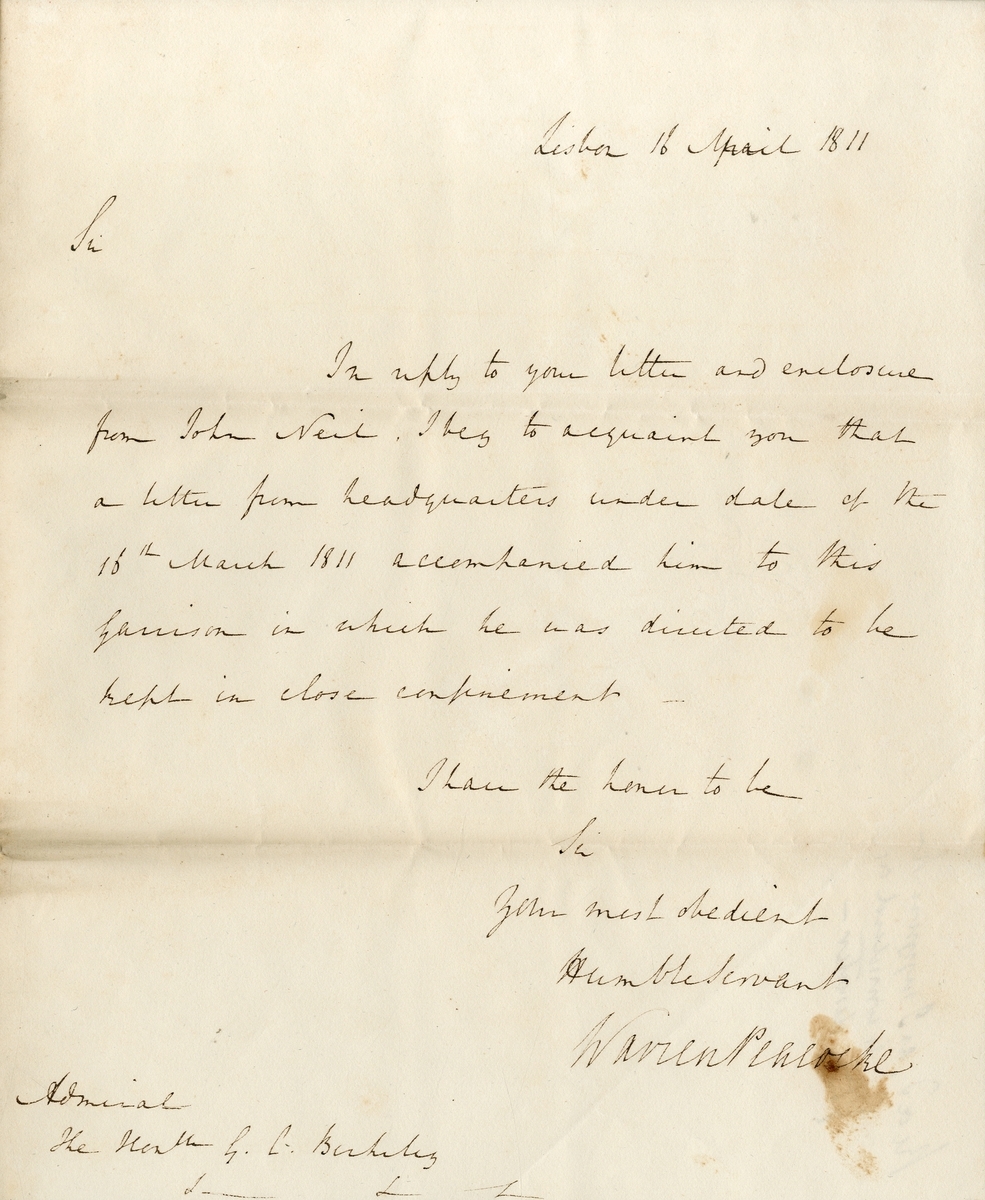 Lisbon 16 April 1811
Sir
In reply to your letter and enclosure
from John Neil. I beg to acquaint you that
a letter from headquarters under date of the
16th March 1811 accompanied him to this
Garrison in which he was directed to be
kept in close confinement –
I have the honor to be
Sir
Your most obedient
Humble Servant
Warren Peacocke
Admiral
The Honble G. C. Berkeley